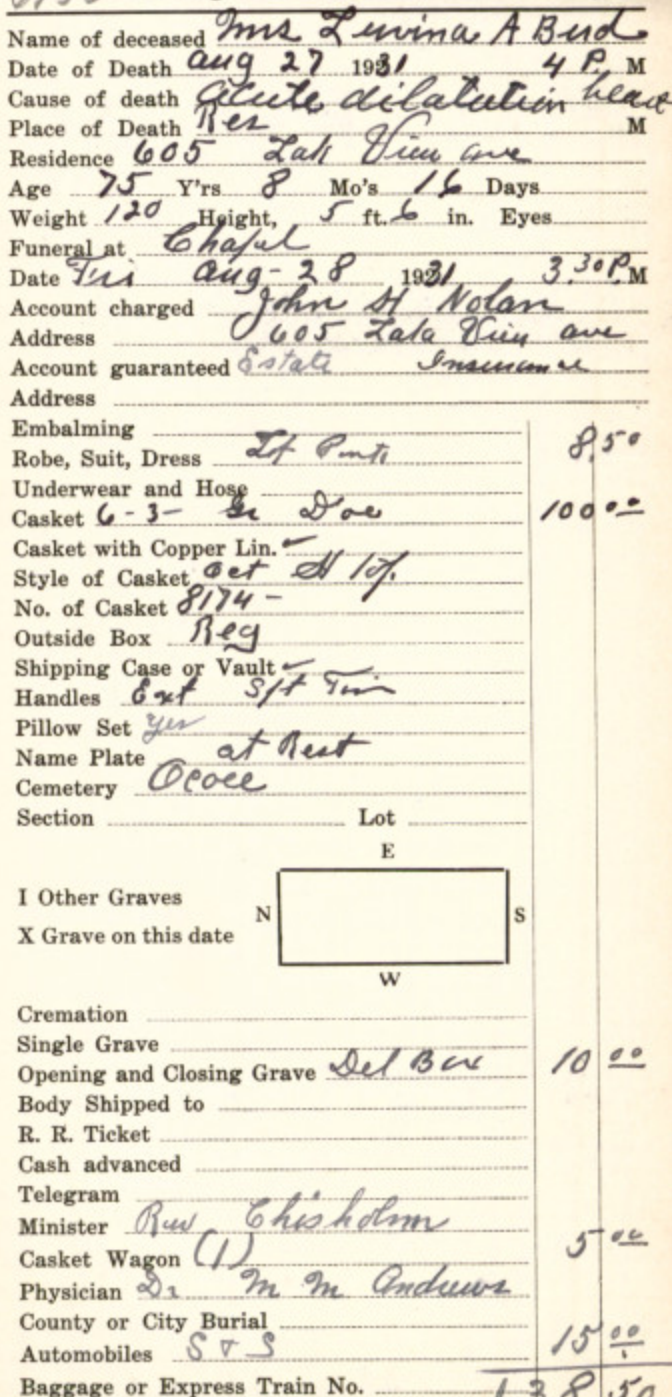 Name of deceased Mrs Luvina A Burd
Date of Death Aug 27 1931 4 P. M
Cause of death Acute dilatution heart
Place of Death Res M
Residence 605 Lak View ave
Age 75 Y'rs 8 Mo's 16 Days
Weight 120 Height, 5 ft. 6 in. Eyes
Funeral at Chapel
Date Fri Aug - 28 1931 3.30 P.M
Account charged John H Nolan
Address 605 Lake View ave
Account guaranteed Estate Insurance
Address
Embalming
Robe, Suit, Dress 8.50
Underwear and Hose
Casket 6-3- Gr Doe 100 00
Casket with Copper Lin. ✓
Style of Casket Oct
No. of Casket 8174 -
Outside Box Reg
Shipping Case or Vault ✓
Handles Ext
Pillow Set yes
Name Plate at Rest
Cemetery Ocoee
Section Lot
E
I Other Graves
N S
X Grave on this date
W
Cremation
Single Grave
Opening and Closing Grave Del Box 10 00
Body Shipped to
R. R. Ticket
Cash advanced
Telegram
Minister Rev Chisholm
Casket Wagon (1) 5 00
Physician Dr M M Andrews
County or City Burial
Automobiles S & S 15 00
Baggage or Express Train No. 138.50